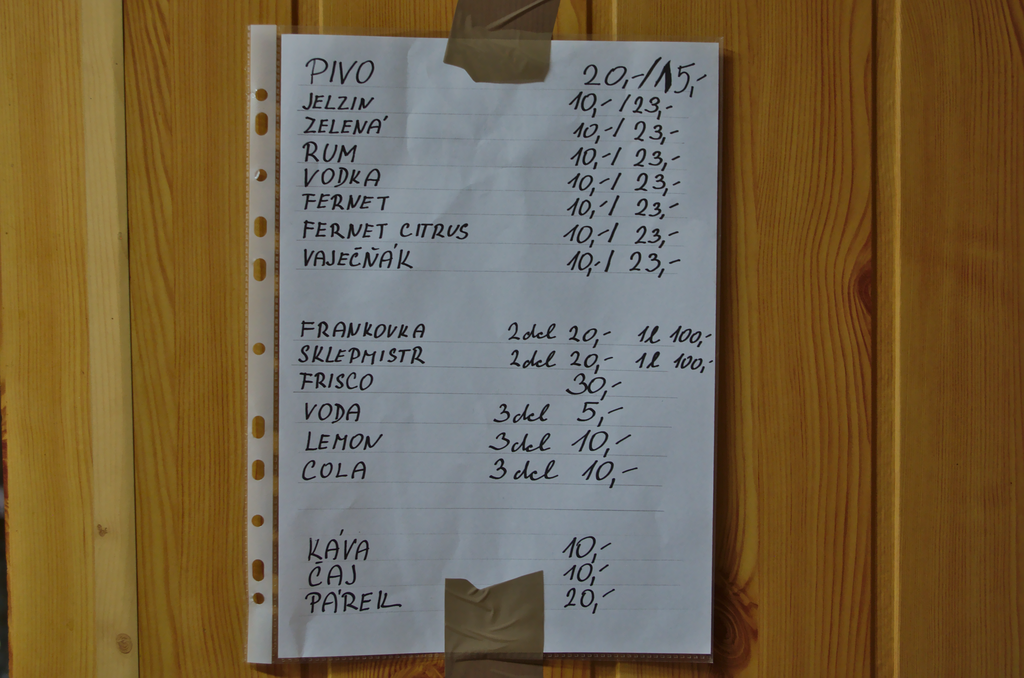 PIVO 20,-/15,-
JELZIN 10,-/23,-
ZELENÁ 10,-/ 23,-
RUM 10,-/ 23,-
VODKA 10,-/ 23,-
FERNET 10,-/ 23,-
FERNET CITRUS 10,-/ 23,-
VAJEČŇÁK 10,-/ 23,-
FRANKOVKA 2dcl 20,- 1l 100,-
SKLEPMISTR 2dcl 20,- 1l 100,-
FRISCO 30,-
VODA 3dcl 5,-
LEMON 3dcl 10,-
COLA 3dcl 10,-
KÁVA 10,-
ČAJ 10,-
PÁREK 20,-